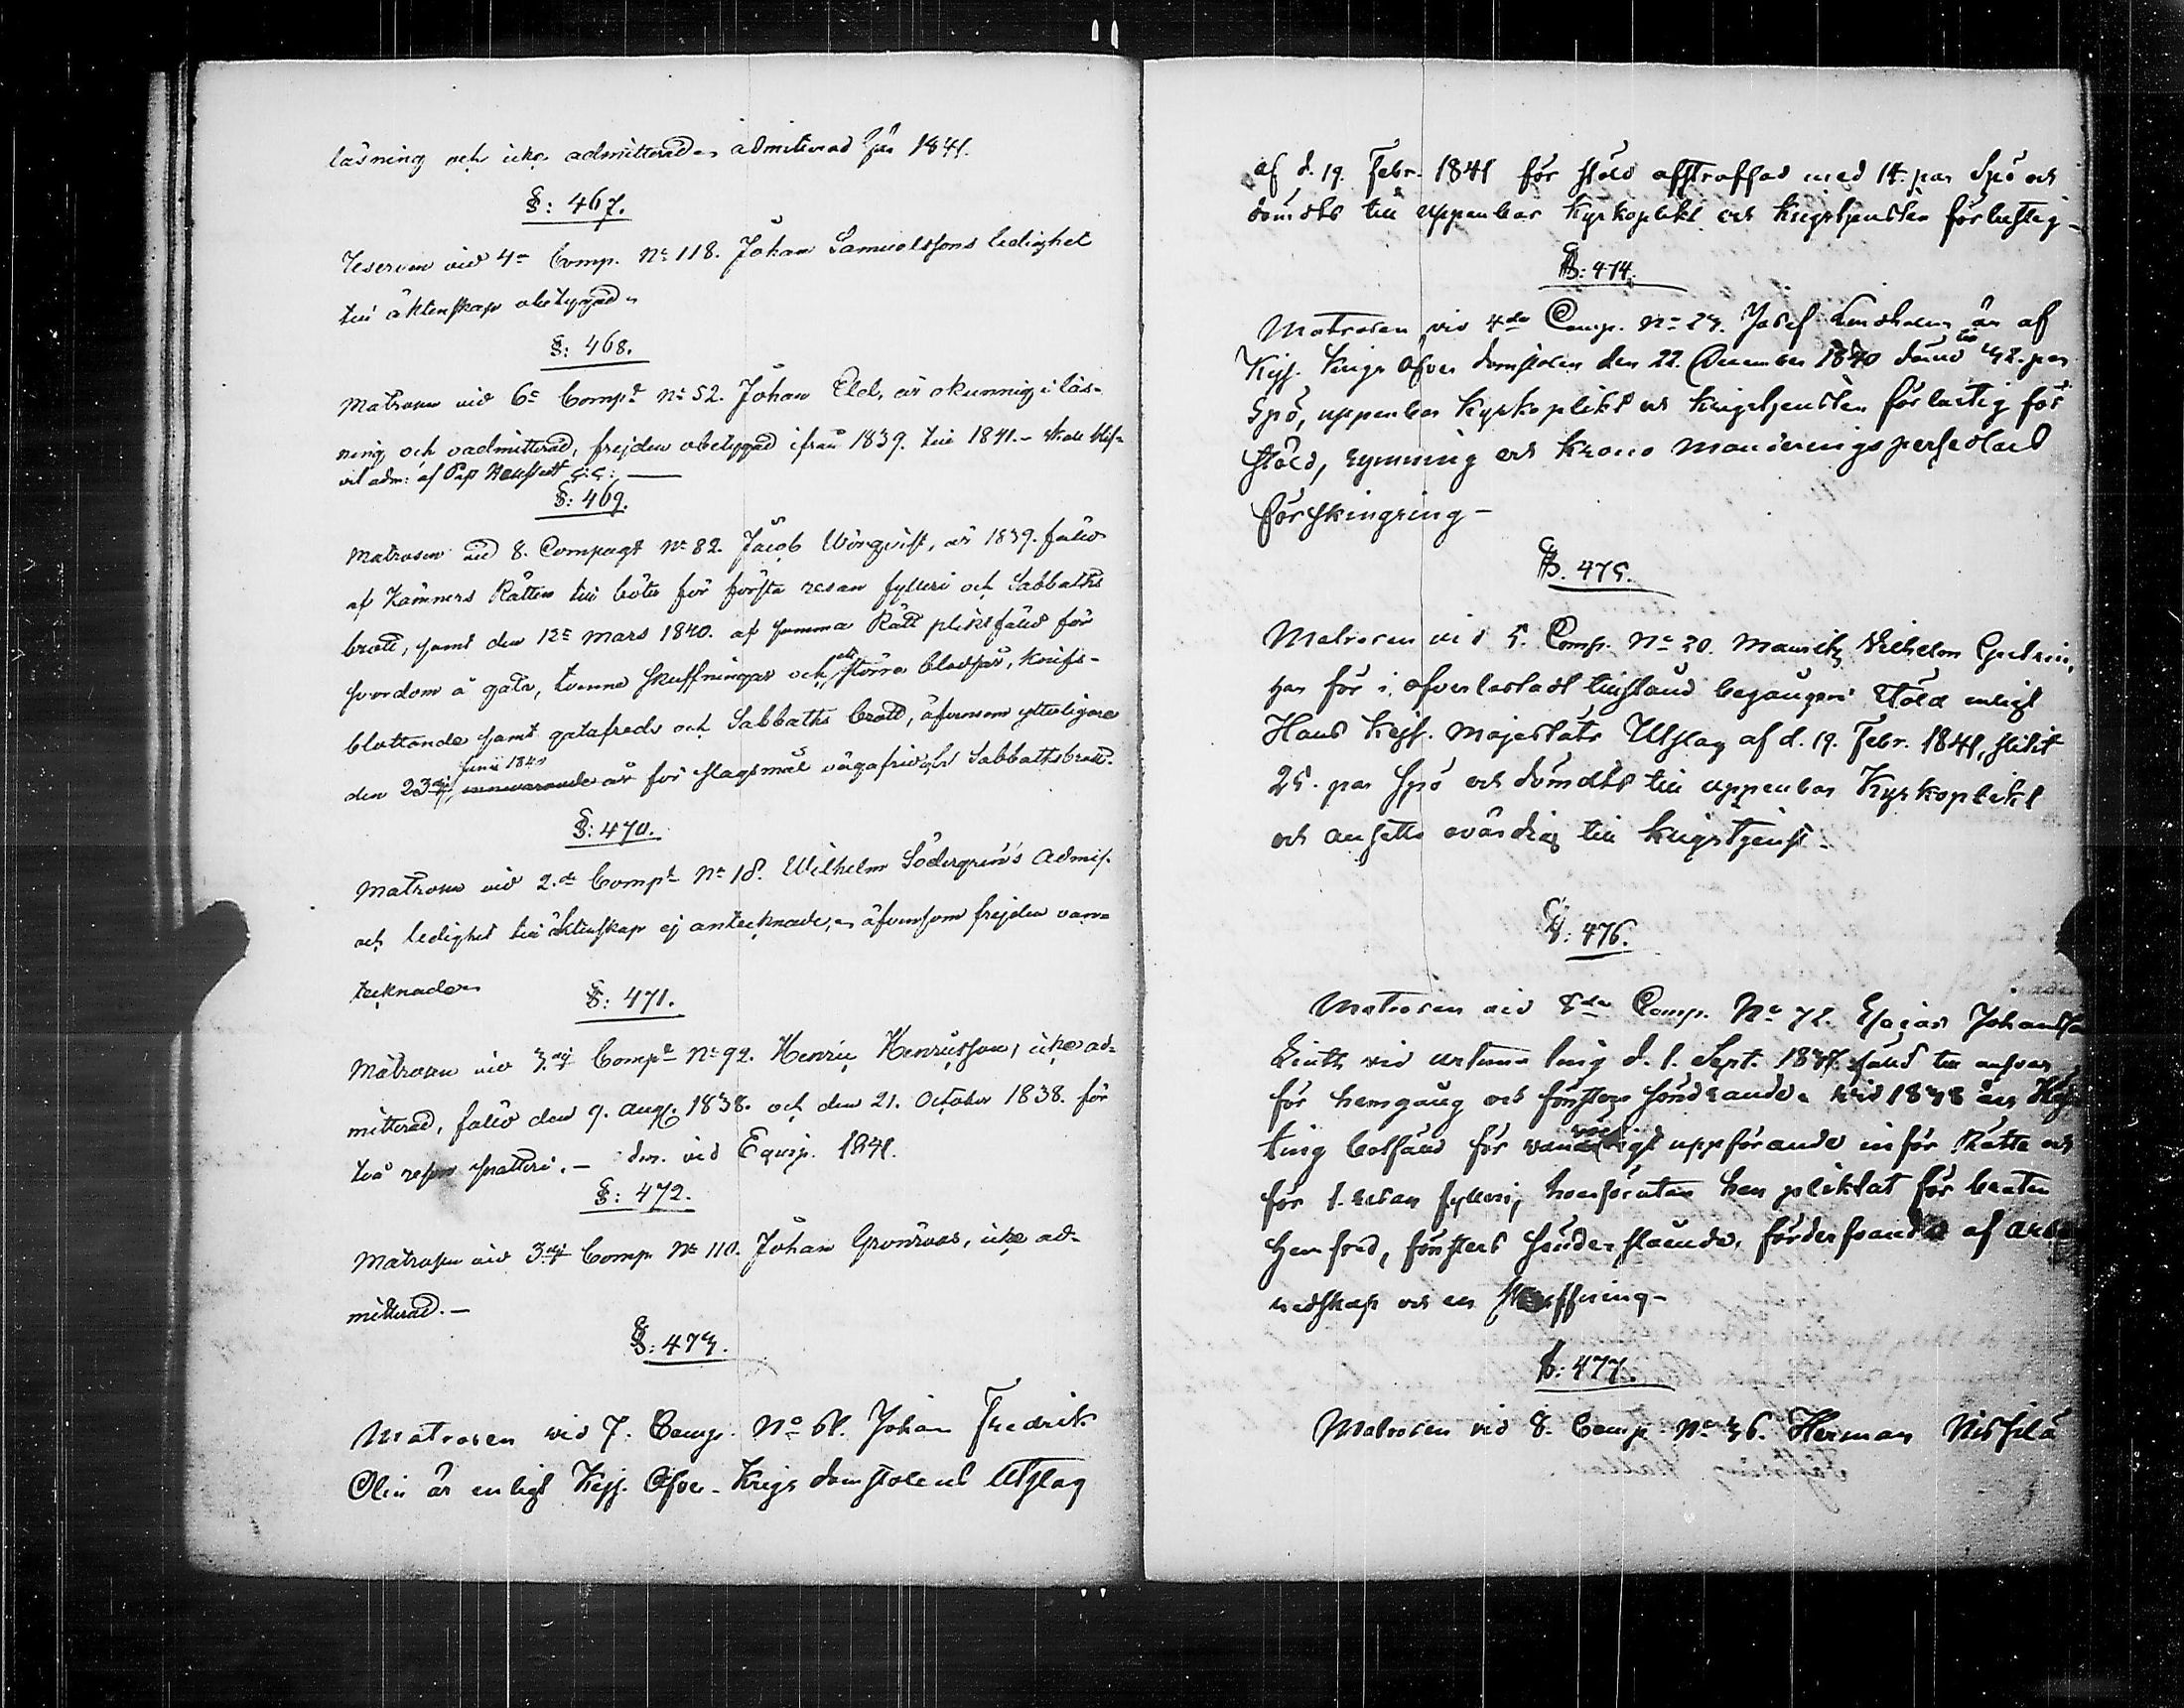 läsning och icke admitterad admitterad 1841.
§: 467.
Reserven vid 4 Comp. No 118. Johan Samuelssons ledighet
till äktenskap obetygad
§: 468.
Matrosen vid 6 Compt No 52. Johan Eld, är okunnig i läs-
ning och oadmitterad, frejden obetygad ifrån 1839. till 1841.-
vit adm: af
§: 469.
Matrosen vid 8. Compagt No 82. Jacob Wörqvist, är 1839. fälld
af Kämners Rätten till böter för första resan fylleri och Sabbaths
brott, samt den 12 Mars 1840. af samma Rätt pliktfälld för
svordom å gata, tvenne skuffningar och större blodsår, knifs-
blottande samt gatufreds och Sabbaths brott, äfvensom ytterligare
junii 1840
den 23 innevarande år för slagsmål vägafrids Sabbathsbrott.
§: 470.
Matrosen vid 2.de Compt No 18. Wilhelm Södergrens Admis.
och ledighet till äktenskap ej antecknade, äfvensom frejden oan-
tecknad
§: 471.
Matrosen vid 3. Compt No 92. Henric Henricsson, icke ad-
mitterad, fälld den 9. Aug. 1838. och den 21. October 1838. för
två resor snatteri. - dm. vid Equip. 1841.
§: 472.
Matrosen vid 3 Comp No 110. Johan Grönroos, icke ad-
mitterad. -
§: 473.
Matrosen vid 7. Comp. No 61. Johan Fredrik
Olin är enligt Kejs. Öfver-Krigs domstolens Utslag
af d. 19. Febr. 1841 för stöld afstraffad med 14. par Spö och
dömdes till uppenbar Kyrkoplikt och krigstjensten förlustig-
§: 474.
Matrosen vid 4de Comp. No 23. Josef Lindholm är af
Kejs. Krigs Öfver domstolen den 22. December 1840 dömd till 32. par
Spö, uppenbar Kyrkoplikt och krigstjensten förlustig för
stöld, rymning och Krono Monderingspersedlars
förskingring-
§. 475.
Matrosen vid 5. Comp. No 30. Mauritz Vilhelm
har för i öfverlastadt tillstånd begången stöld enligt
Hans Kejs. Majestäts Utslag af d. 19. Febr. 1841, slitit
25. par Spö och dömdes till uppenbar Kyrkoplikt
och ansetts ovärdig till krigstjenst
§: 476.
Matrosen vid 8de Comp. No 72. Esaias Johansson
Linth vid ting d. 1. Sept. 1837. fälld till ansvar
för hemgång och fönsters sönderslående. Wid 1838 års
ting botfälld för uppförande inför Rätta och
för 1. resan fylleri, hvarförutan han pliktat för
hemfrid, fönsters sönderslående, förderfvande af
redskap och en skuffning-
§: 477.
Matrosen vid 8. Comp No 36. Herman Nissilä